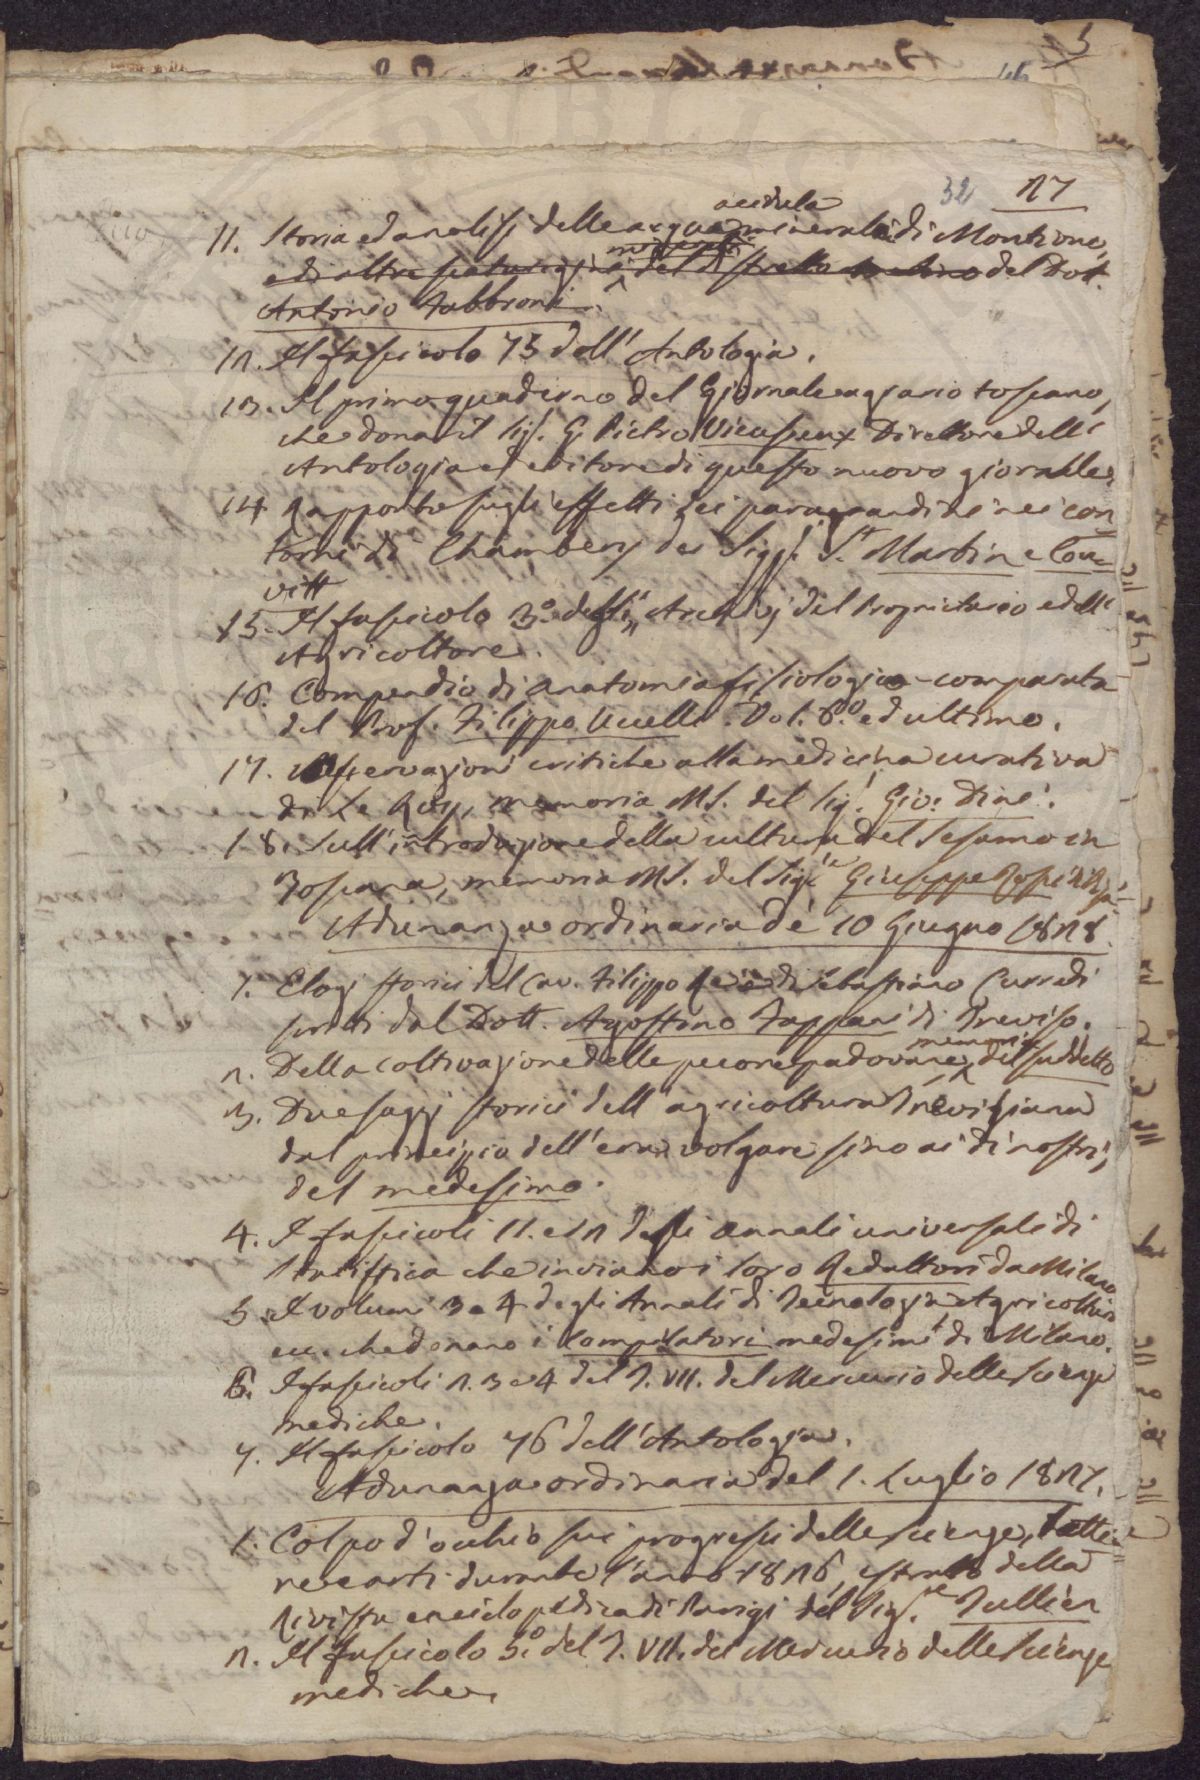 5
46
32 27
acidula
11. Storia ed analisi delle acque minerali di Montione,
minerali
ed altre scaturigini del distretto aretino del Dott.
Antonio Fabbroni.
12. Il fascicolo 75 dell'Antologia.
13. Il primo quaderno del Giornale agrario toscano,
che dona il Sig. G. Pietro Vieusseux Direttore dell'
Antologia ed editore di questo nuovo giornale.
14 Rapporto sugli effetti dei paragrandini nei con=
torni di Chambery dei Sigg. St. Martin e Cou=
vitt
15. Il fascicolo 3.o degli Archivj del Proprietario e dell'
Agricoltore.
16. Compendio di anatomia fisiologico-comparata
del Prof. Filippo Uccelli. Vol. 6.o ed ultimo.
17. Osservazioni critiche alla medicina curativa
di Le Roy, memoria MS. del Sig. Gio: Dinè.
18. Sull'introduzione della cultura del Sesamo in
Toscana, memoria MS. del Sig.re Giuseppe
Adunanza ordinaria de' 10 Giugno 1828
1. Elogj storici del Cav. Filippo Re e di Sebastiano Curredi
scritti dal Dott. Agostino Fappani di Treviso.
memoria
2. Della coltivazione delle pecore padovane, del suddetto
3. Due saggj storici dell'agricoltura Trevigiana
dal principio dell'era volgare sino ai dì nostri,
del medesimo.
4. I fascicoli 11. e 12 degli annali universali di
Statistica che inviano i loro Redattori da Milano
5. I volumi 3 e 4 degli Annali di Tecnologia Agricoltura
ec. che donano i Compilatori medesimi di Milano.
6. I fascicoli 2. 3 e 4 del T. VII. del Mercurio delle scienze
mediche.
7. Il fascicolo 76 dell'Antologia.
Adunanza ordinaria del 1. Luglio 1827.
1. Colpo d'occhio sui progressi delle scienze, lette=
re e arti durante l'anno 1826, estratto della
Rivista enciclopedica di Parigi del Sig.re Jullien
2. Il fascicolo 5.o del T. VII. del Mercurio delle scienze
mediche.